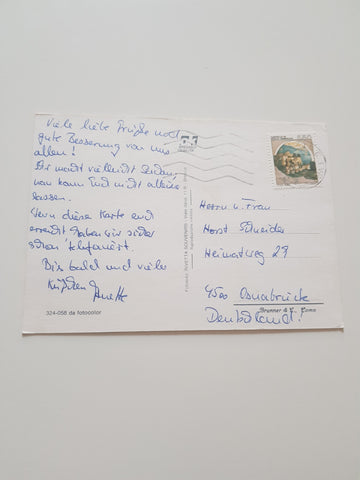 Viele liebe Grüße und
gute Besserung von uns
allen!
Ihr macht vielleicht Sachen,
man kann Euch nicht alleine
lassen.
Wenn diese Karte euch
erreicht haben wir sicher
schon telefoniert.
Bis bald und viele
Küßchen Anette
324-058 da fotocolor
Fotocolor RUVETTA SOUVENIRS
Herrn u. Frau
Horst Schneider
Heimatweg 29
4500 Osnabrück
Brunner & C., Como
Deutschland!